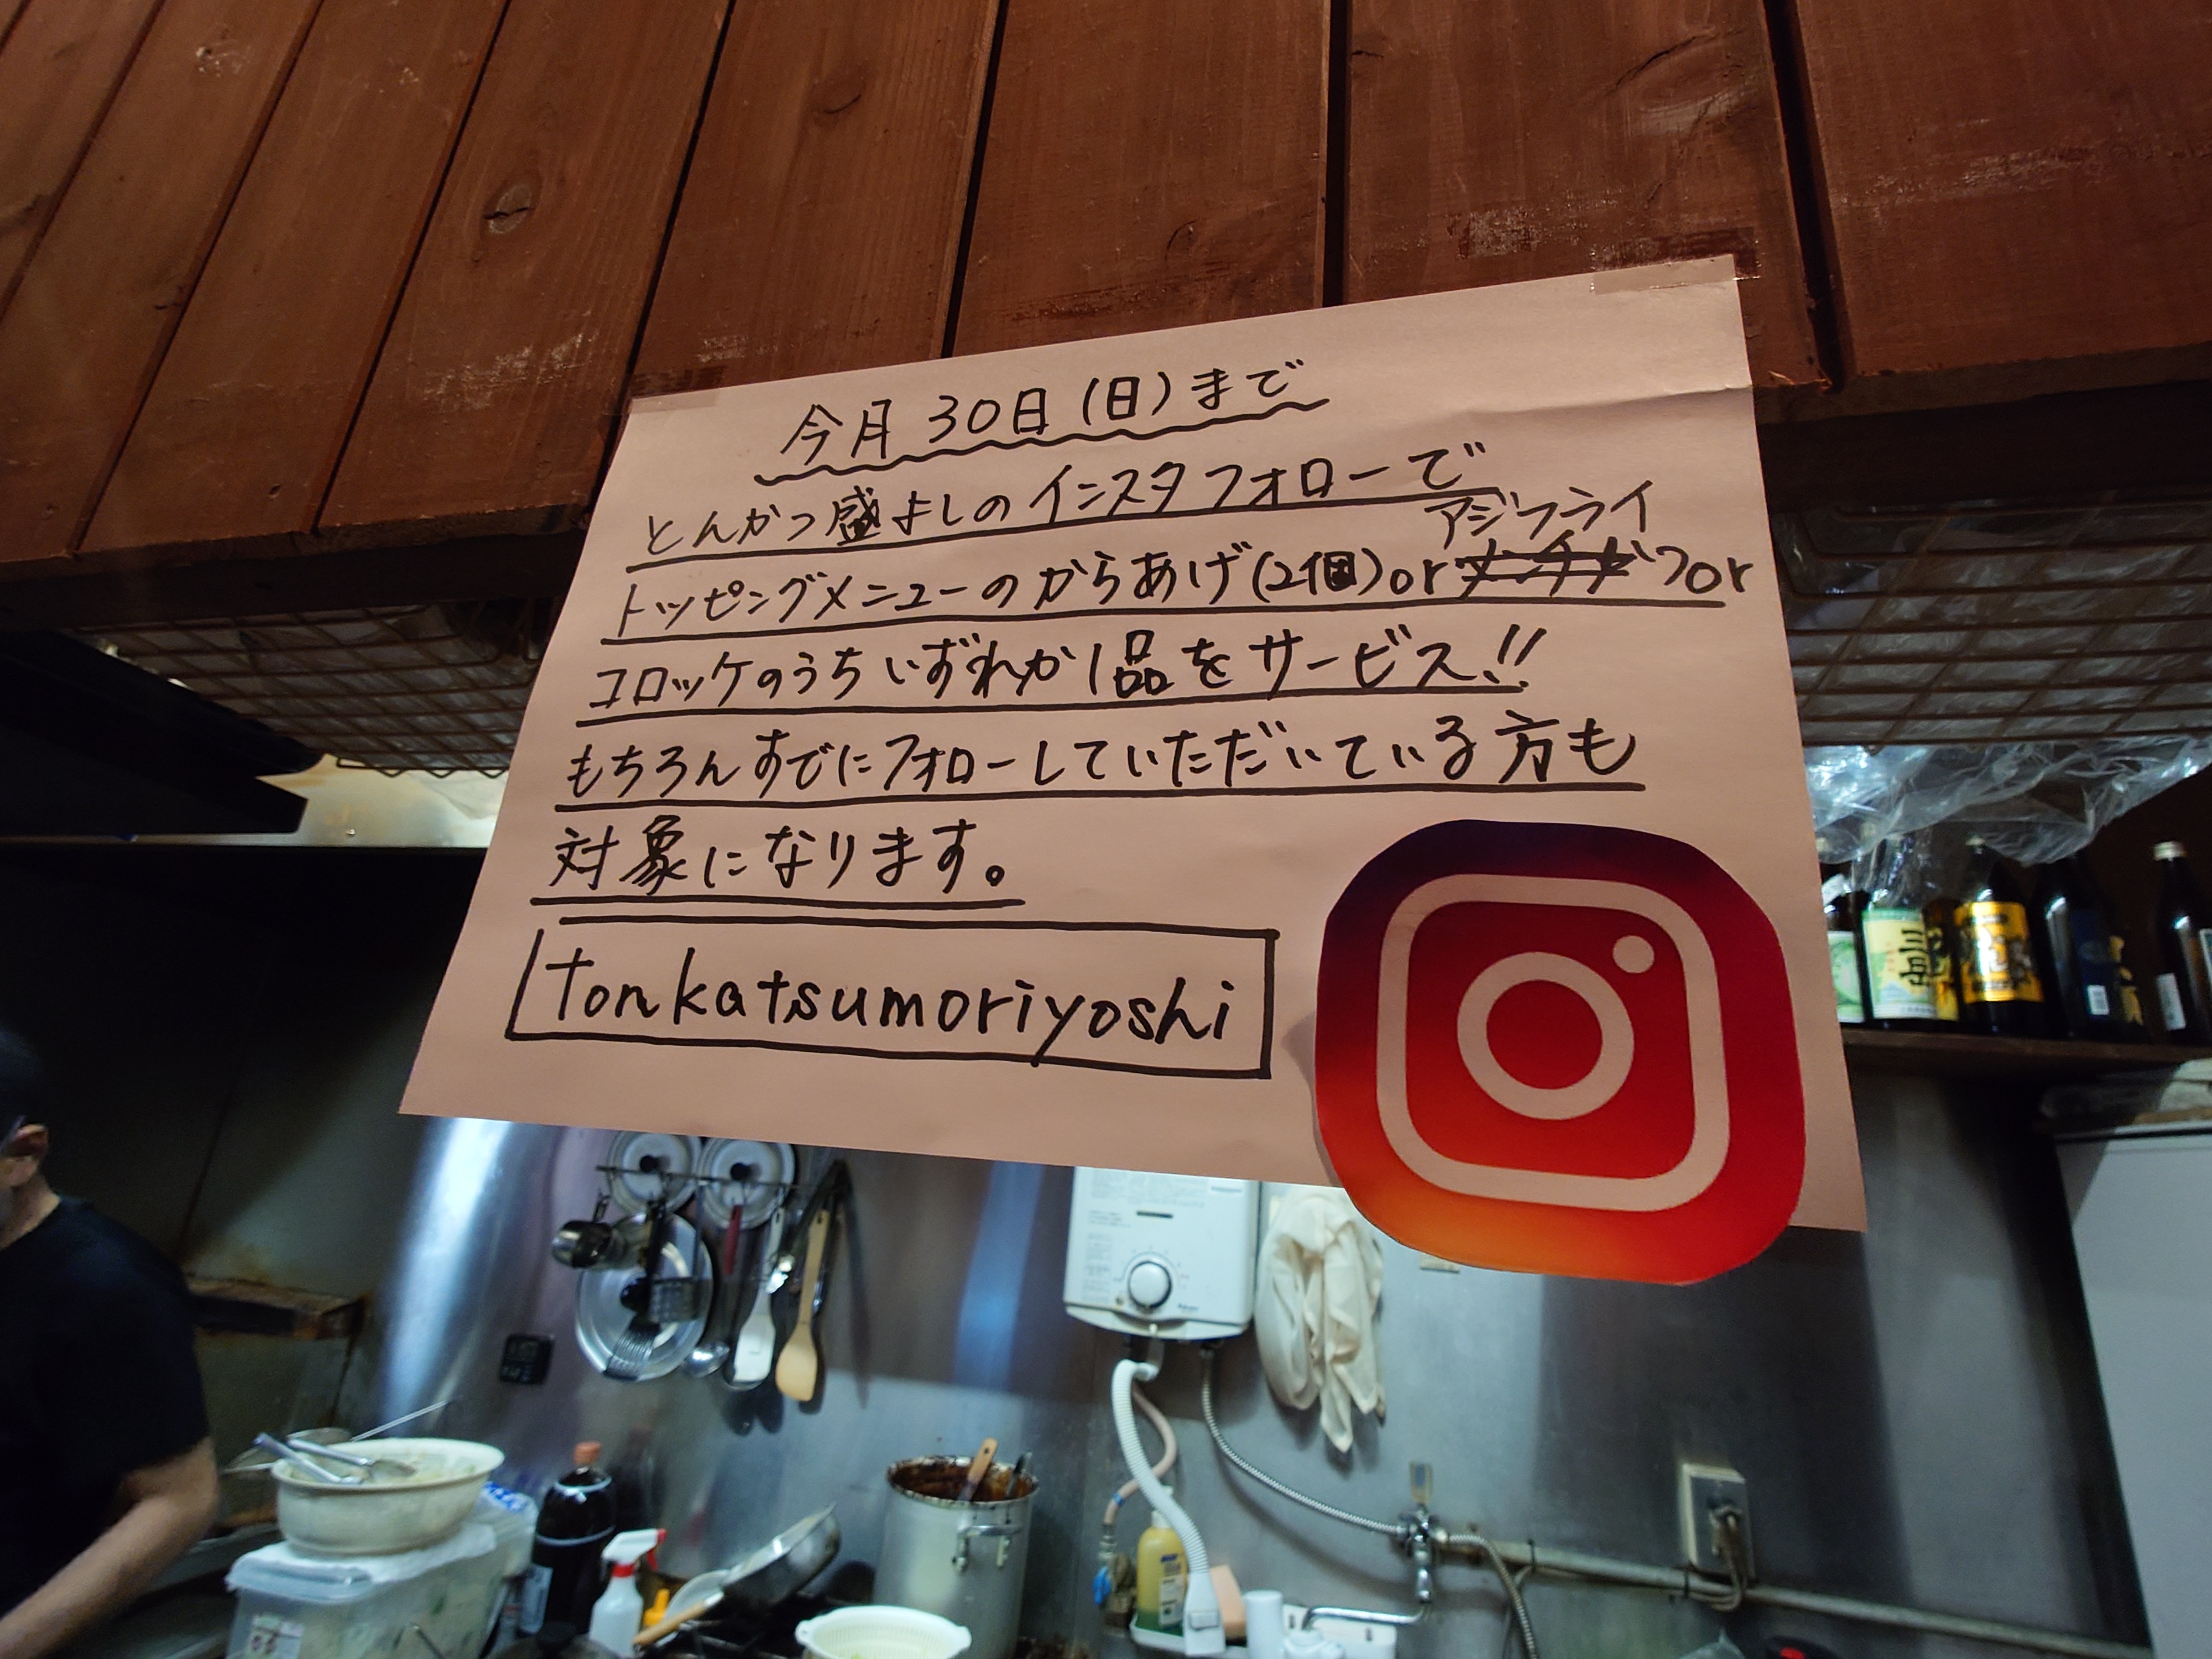 今月30日(日)まで
とんかつ盛よしのインスタフォローで
アジフライ
トッピングメニューのからあげ(2個)or メンチカツor
コロッケのうちいずれか1品をサービス!!
もちろんすでにフォローしていただいている方も
対象になります。
tonkatsumoriyoshi